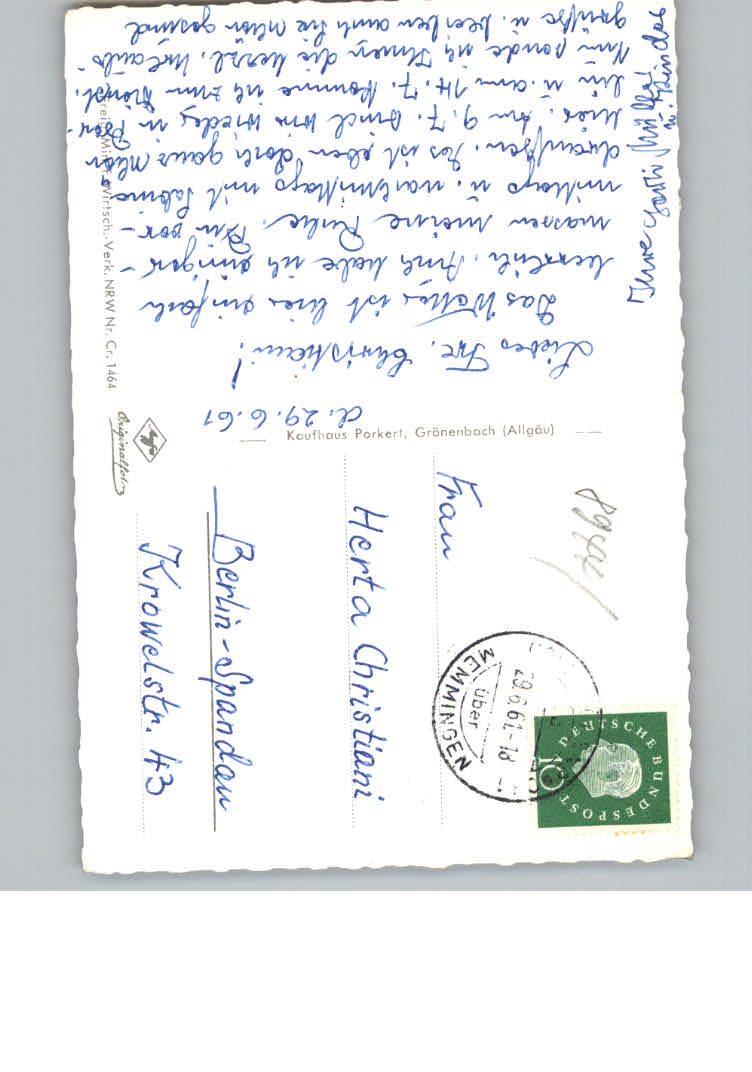 d. 29.6.61
Liebes Frl. Christiani!
Das Wetter ist hier einfach
herrlich. Auch habe ich einiger-
massen meine Ruhe. Am vor-
mittags u. nachmittags mit Sabine
draußen. Das ist eben doch ganz schön
hier. Am 9.7. sind wir wieder in Ber-
lin u. am 14.7. komme ich zum Dienst.
Nun sende ich Ihnen die herzl. Urlaubs-
grüße u. bleiben auch Sie schön gesund
Ihre
u. Kinder
Kaufhaus Porkert, Grönenbach (Allgäu)
Wirtsch.-Verk. NRW Nr. Cr. 1464
Agfa
Originalfoto
Frau
Herta Christiani
Berlin-Spandau
Krowelstr. 43
über
MEMMINGEN
29.6.61-18
DEUTSCHE BUNDESPOST
10